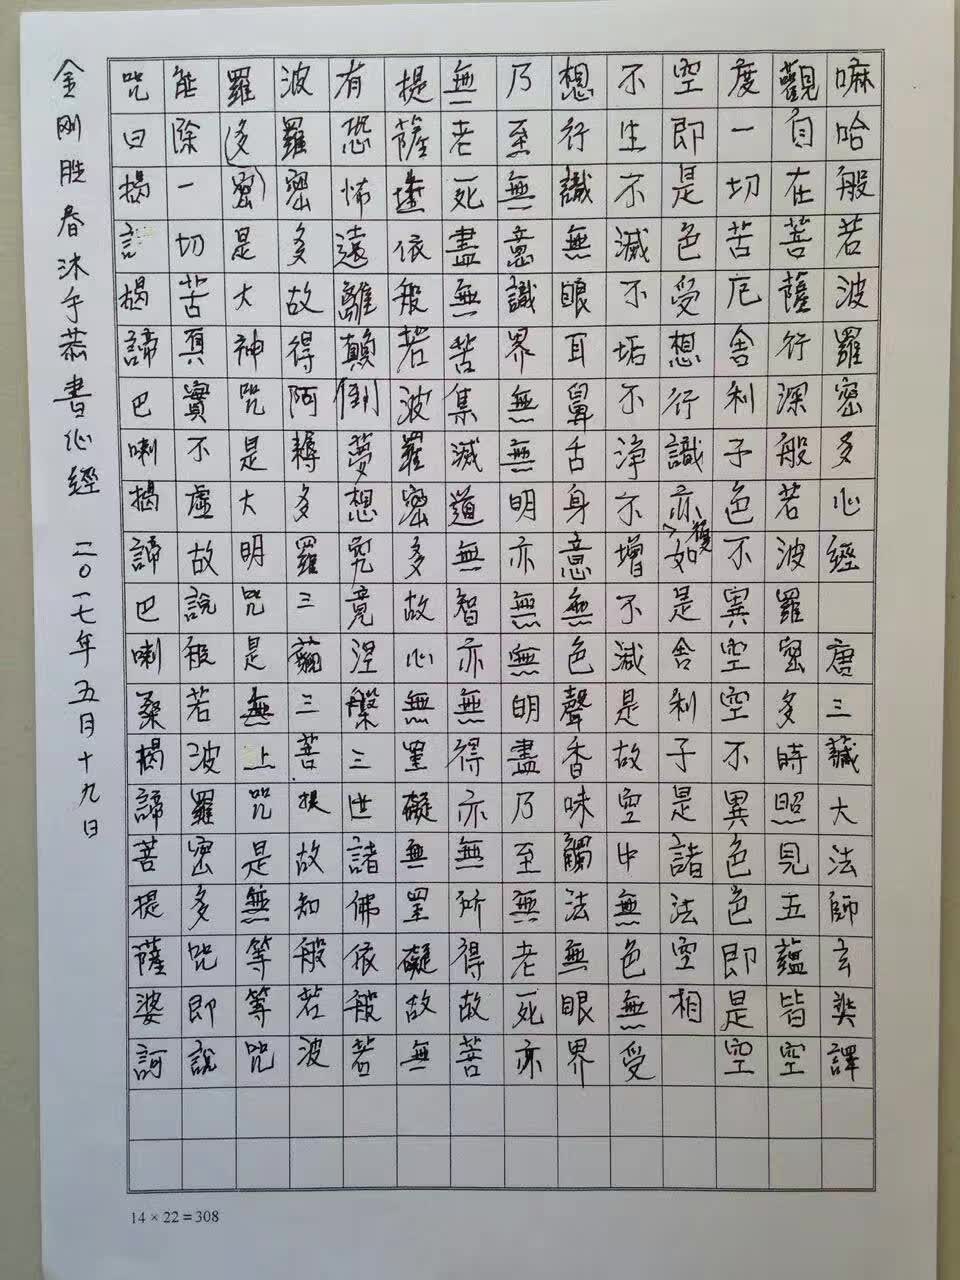 嘛哈般若波羅密多心經 唐三藏大法師玄奘譯
觀自在菩薩行深般若波羅密多時照見五蘊皆空
度一切苦厄舍利子色不異空空不異色色即是空
空即是色受想行識亦復如是舍利子是諸法空相
不生不滅不垢不淨不增不減是故空中無色無受
想行識無眼耳鼻舌身意無色聲香味觸法無眼界
乃至無意識界無無明亦無無明盡乃至無老死亦
無老死盡無苦集滅道無智亦無得亦無所得故菩
提薩埵依般若波羅密多故心無罣礙無罣礙故無
有恐怖遠離顛倒夢想究竟涅槃三世諸佛依般若
波羅密多故得阿耨多羅三藐三菩提故知般若波
羅多密是大神咒是大明咒是無上咒是無等等咒
能除一切苦真實不虛故說般若波羅密多咒即說
咒曰揭揭諦巴喇揭諦巴喇桑揭諦菩提薩婆訶
金剛胜春沐手恭書心經 二0一七年五月十九日
14 × 22 = 308